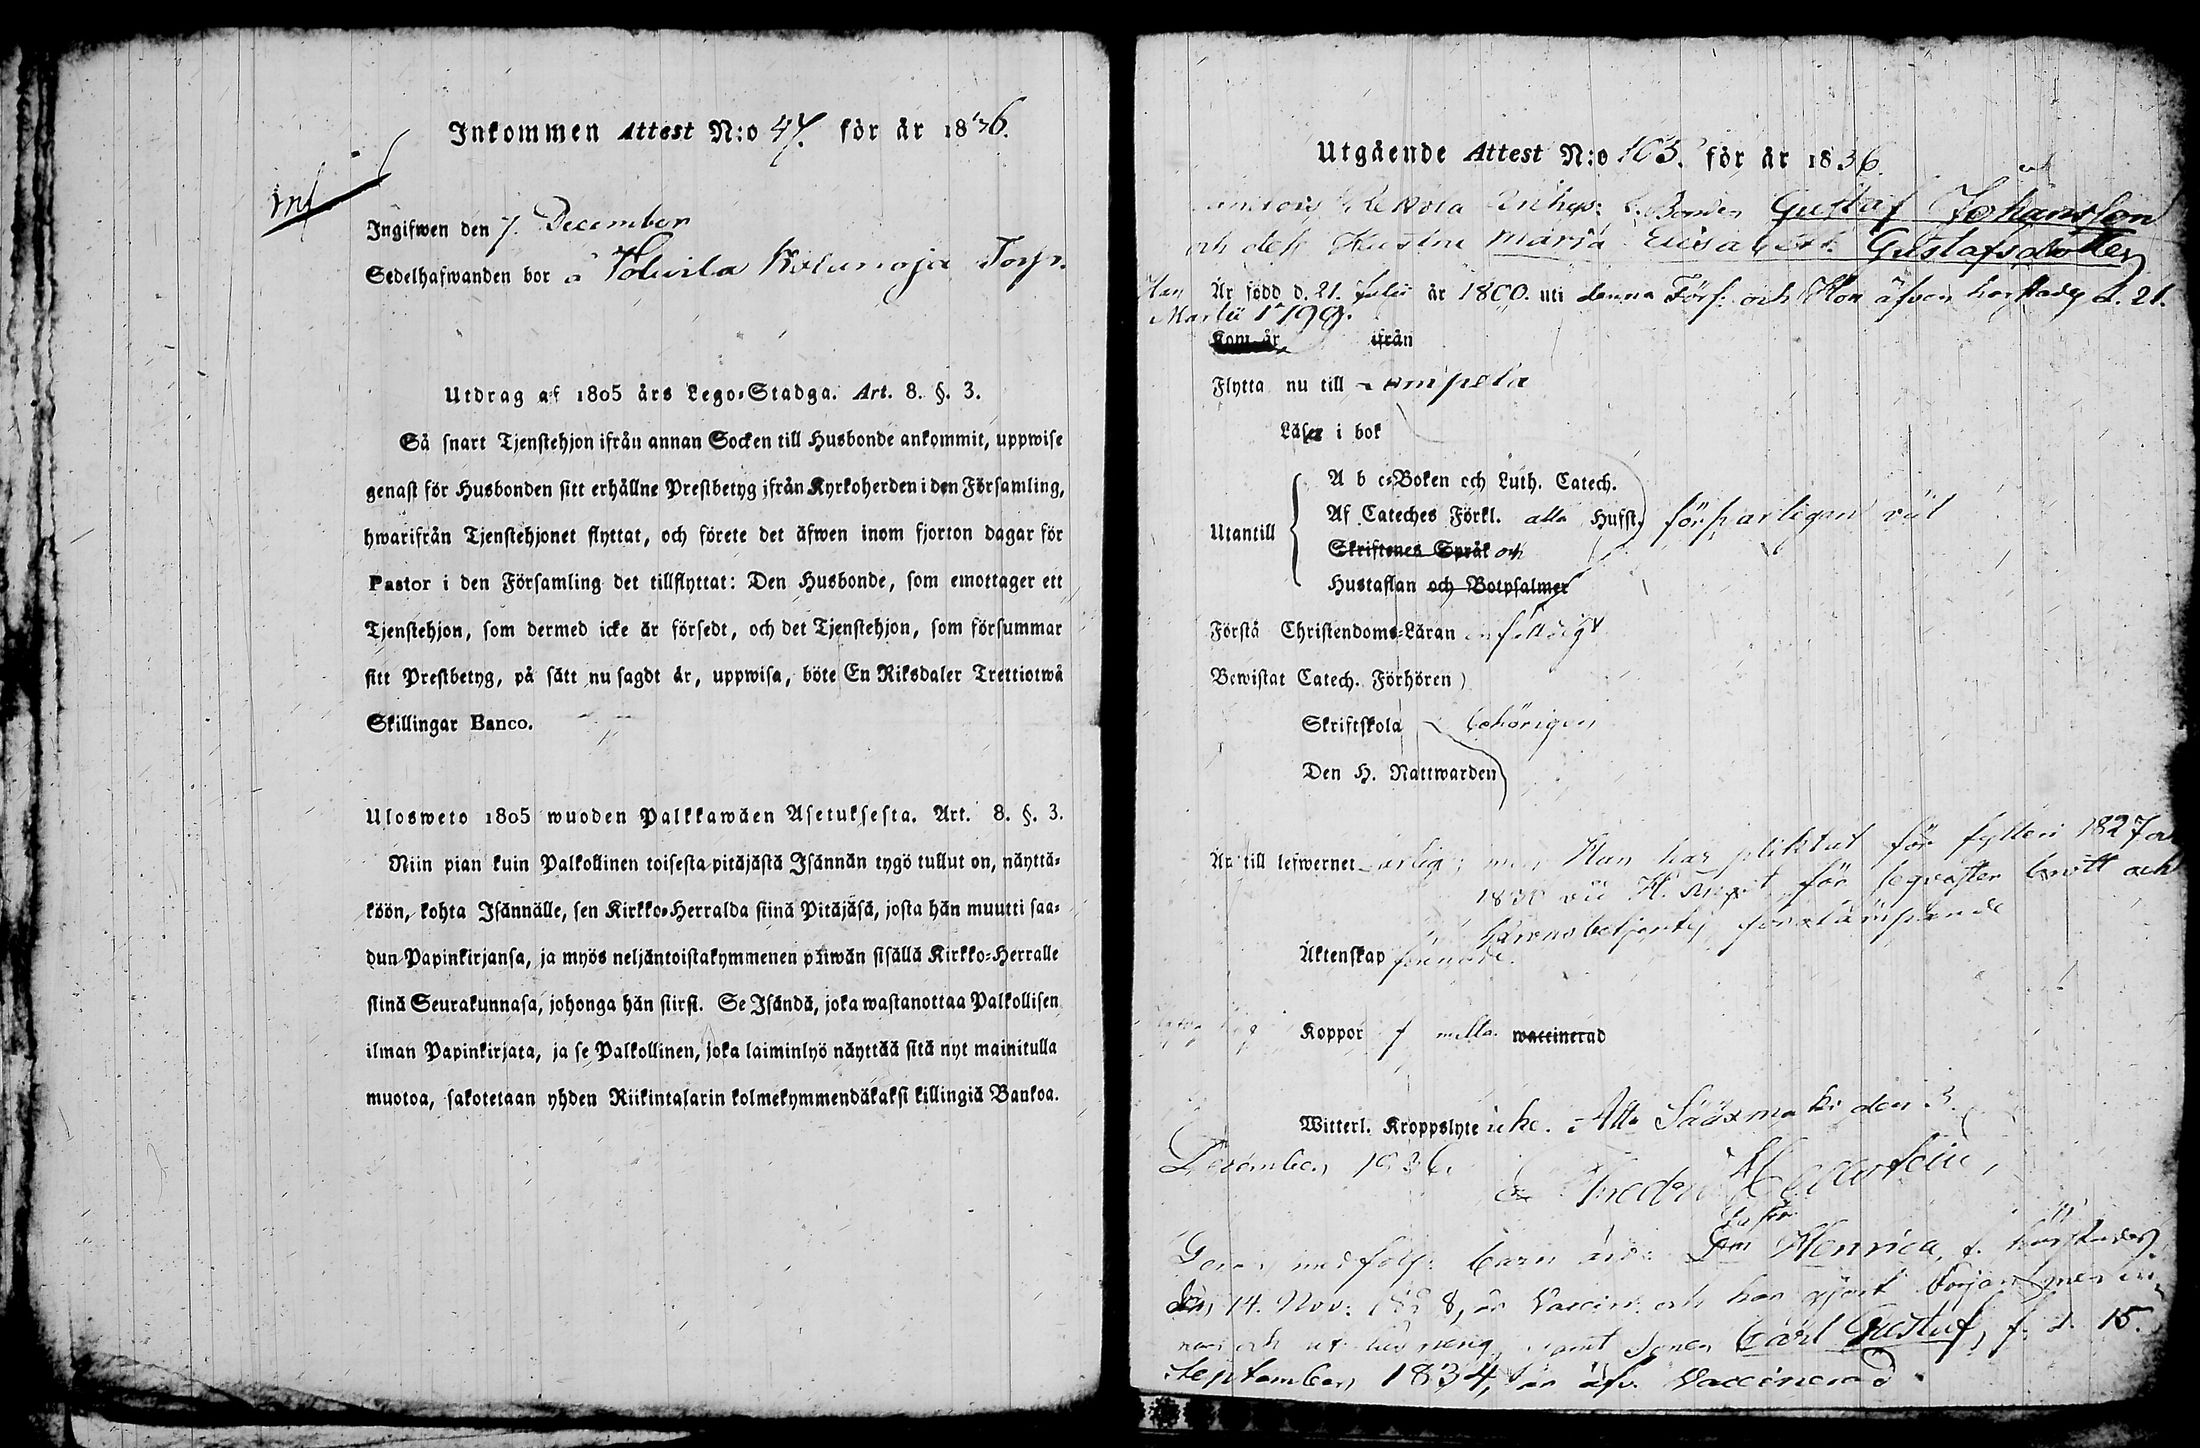 Inkommen Attest N:o 47. för år 1836.
inf
Ingifwen den 7. December
Sedelhafwanden bor å Torp.
Utdrag af 1805 års Lego-Stadga. Art. 8. §. 3.
Så snart Tjenstehjon ifrån annan Socken till Husbonde ankommit, uppwise
genast för Husbonden sitt erhållne Prestbetyg ifrån Kyrkoherden i den Församling,
hwarifrån Tjenstehjonet flyttat, och förete det äfwen inom fjorton dagar för
Pastor i den Församling det tillflyttat: Den Husbonde, som emottager ett
Tjenstehjon, som dermed icke är försedt, och det Tjenstehjon, som försummar
sitt Prestbetyg, på sätt nu sagdt är, uppwisa, böte En Riksdaler Trettiotwå
Skillingar Banco.
Ulosweto 1805 wuoden Palkkawäen Asetuksesta. Art. 8. §. 3.
Niin pian kuin Palkollinen toisesta pitäjästä Isännän tygö tullut on, näyttä-
köön, kohta Isännälle, sen Kirkko-Herralda siinä Pitäjäsä, josta hän muutti saa-
dun Papinkirjansa, ja myös neljäntoistakymmenen päiwän sisällä Kirkko-Herralle
siinä Seurakunnasa, johonga hän siirsi. Se Isändä, joka wastanottaa Palkollisen
ilman Papinkirjata, ja se Palkollinen, joka laiminlyö näyttää sitä nyt mainitulla
muotoa, sakotetaan yhden Riikintalarin kolmekymmendäkaksi killingiä Bankoa.
Utgående Attest N:o 103. för år 1836.
Bonden Gustaf Johansson
och dess Hustru Maria Elisabet Gustafsdotter
Han Är född d. 21. Julii år 1800. uti denna Förs. och Hon äfven härstädes d. 21.
Martii 1799.
Kom år ifrån
Flytta nu till Lempelä
Läser i bok
A b c-Boken och Luth. Catech.
Af Cateches Förkl. alla Husst.
Utantill
försvarligen väl
Skriftenes Språk och
Hustaflan och Botpsalmer
Förstå Christendoms-Läran enfaldigt
Bewistat Catech. Förhören
Skriftskola behörigen
Den H. Nattwarden
Är till lefwernet ärlig; men Han har pliktat för fylleri 1827 och
1830 vid H. Ting för brott och
Kronobetjentes
Äktenskap förenade.
Koppor waccinerad
Witterl. Kroppslyte icke. Att. Sääxmäki den 3.
December 1836.
Dottren
Deras medfölj. barn äro: Henrica, f. härstädes
den 14. Nov. 1828, är Vaccin. och har gjort början med in-
nan och utanläsning, samt Sonen Carl Gustaf, f. d. 15.
September 1834, är äfv. Vaccinerad.